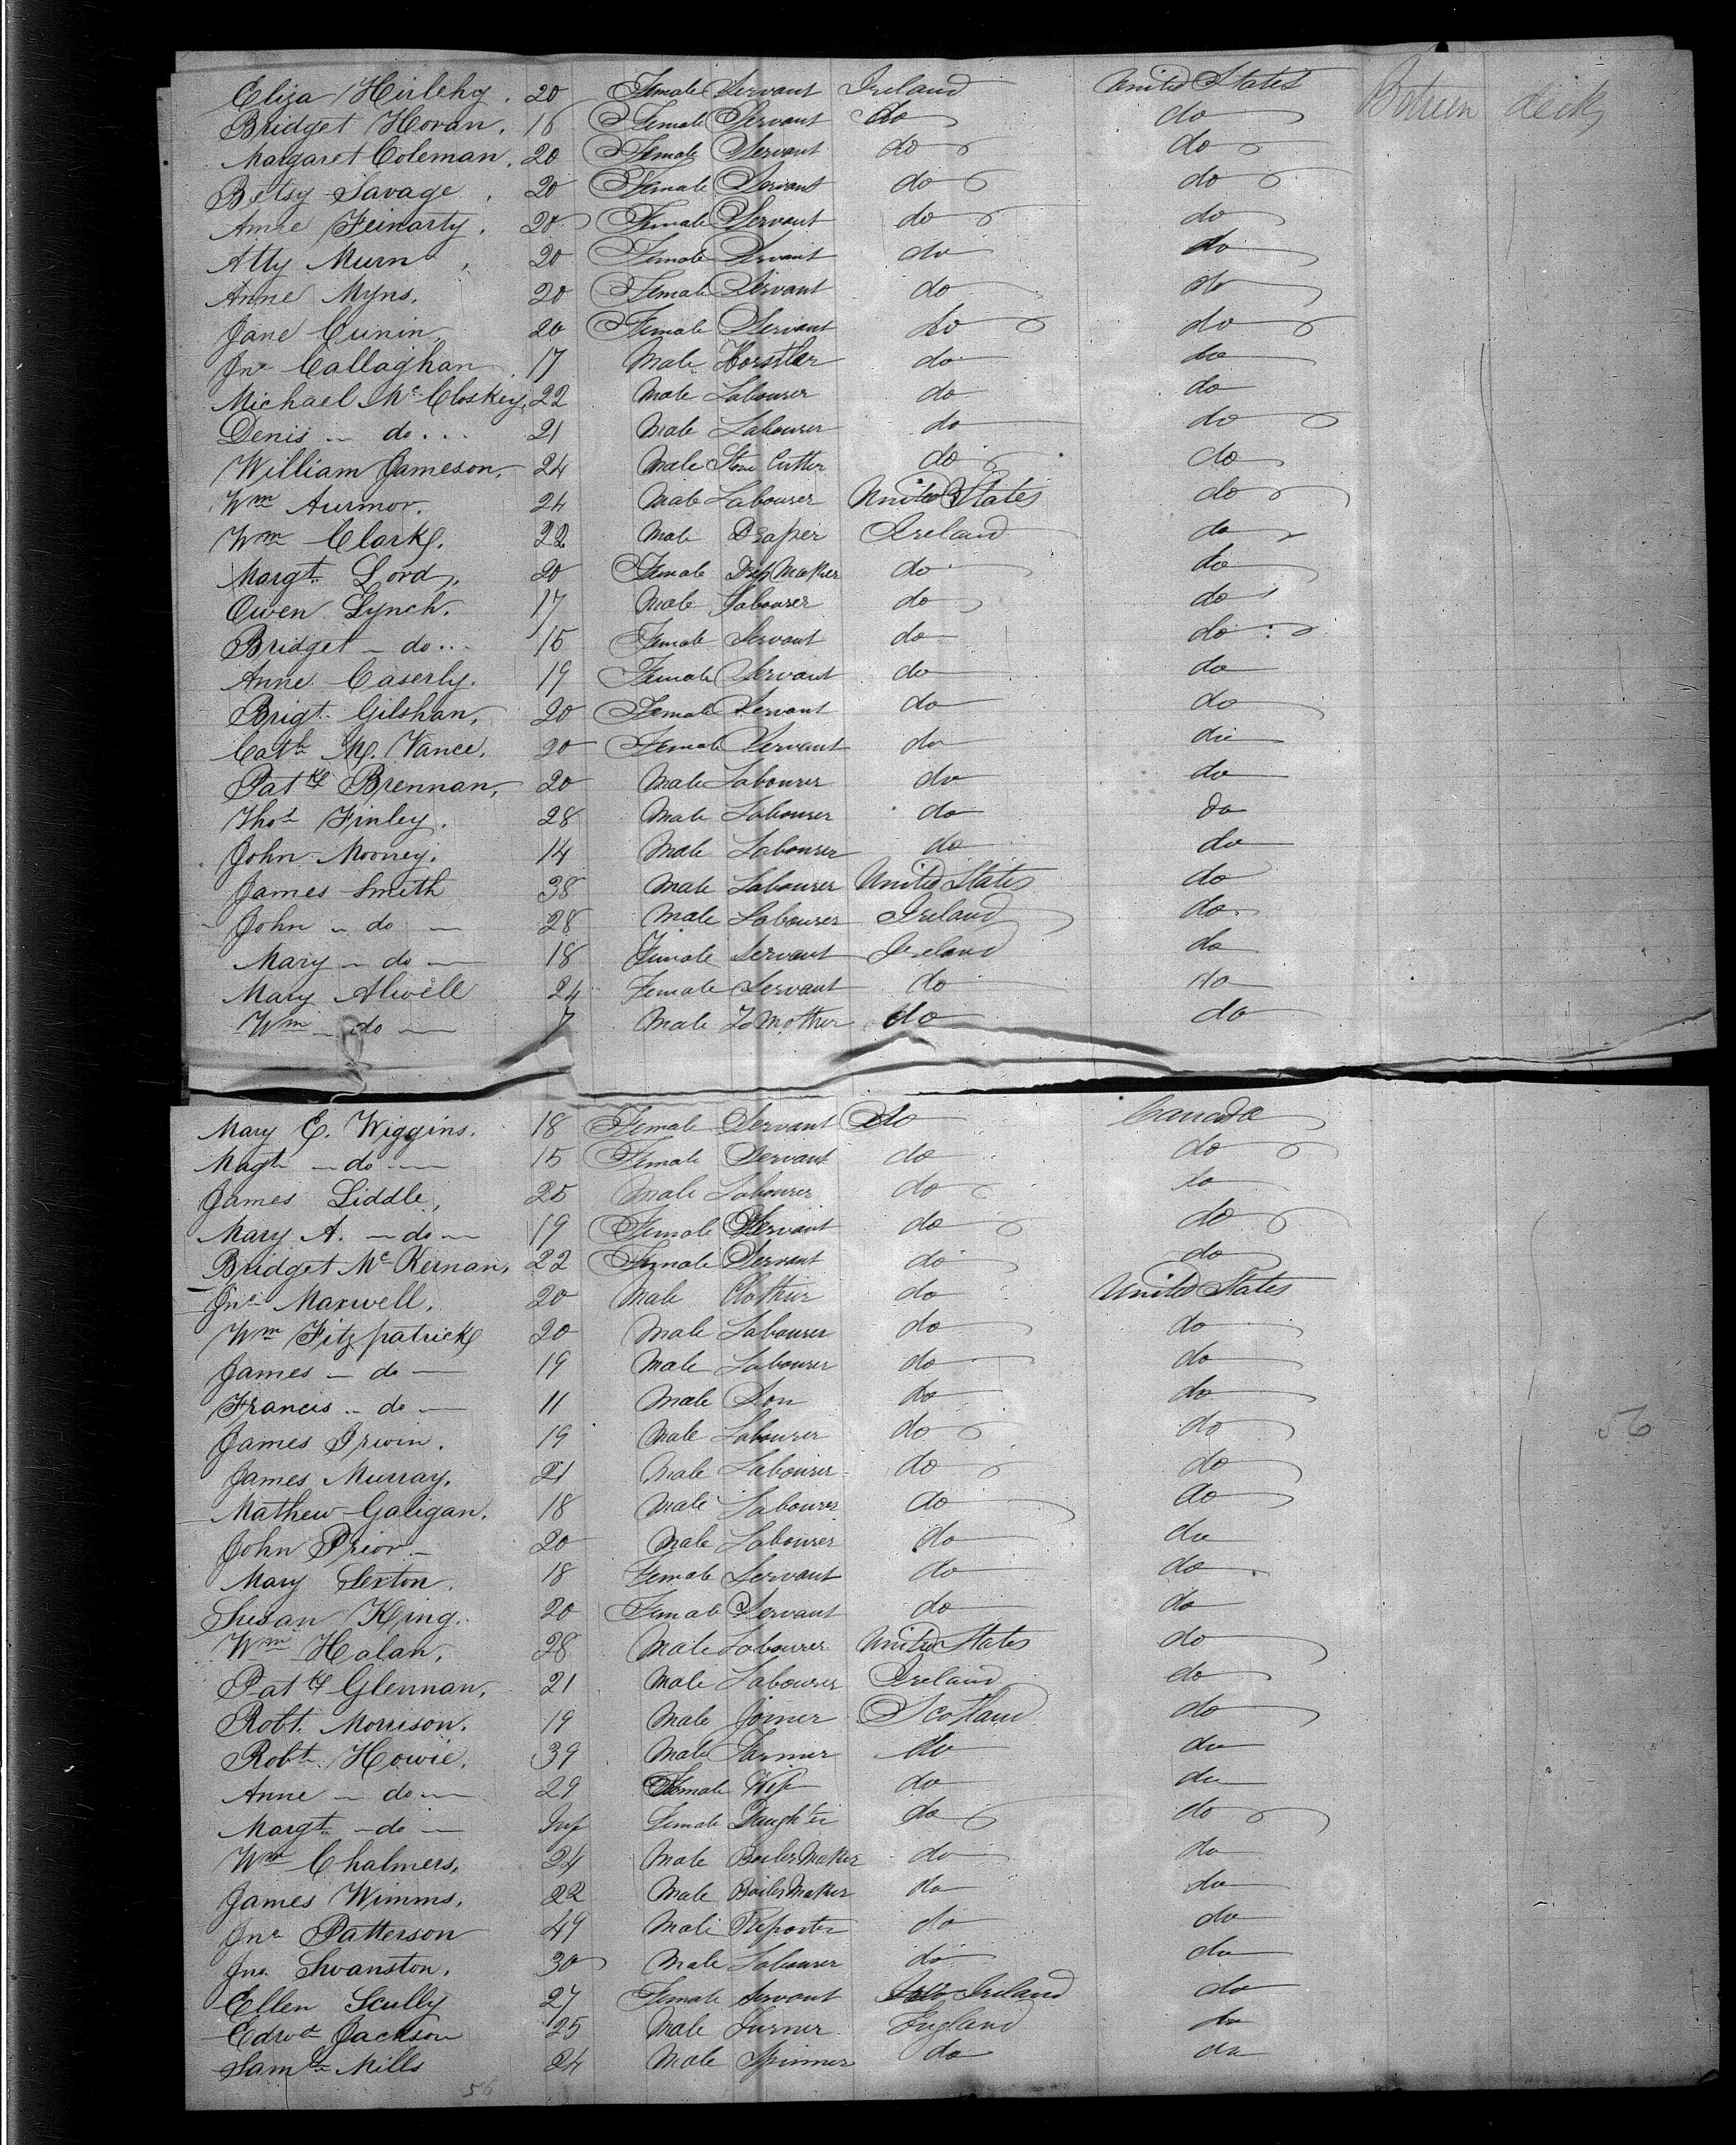 Eliza Heilehy. 20 Female Servant Ireland United States Between deck
Bridget Horan. 16 Female Servant do do
Margaret Coleman. 20 Female Servant do do
Betsy Savage. 20 Female Servant do do
Anne Feinarty. 20 Female Servant do do
Atty Murn 20 Female Servant do do
Anne Myns. 20 Female Servant do do
Jane Cunin 20 Female Servant do do
Jno Callaghan 17 Male Horstler do do
Michael Mc Closkey, 22 Male Labourer do do
Denis - do... 21 Male Labourer do do
William Jameson, 24 Male Stone Cutter do do
Wm Aurmor. 24 Male Labourer United States do
Wm Clark. 22 Male Draper Ireland do
Margt. Lord, 20 Female Drss Maker do do
Owen Lynch. 17 Male Labourer do do
Bridget - do... 15 Female Servant do do
Anne Caserly. 19 Female Servant do do
Brigt. Gilshan, 20 Female Servant do do
Cath Mc. Vance, 20 Female Servant do do
Patk Brennan, 20 Male Labourer do do
Thos Finley. 28 Male Labourer do do
John Mooney. 14 Male Labourer do do
James Smith 38 Male Labourer United States do
John - do - 28 Male Labourer Ireland do
Mary - do - 18 Female Servant Ireland do
Mary Alwell 24 Female Servant do do
Wm - do - 7 Male To Mother do do
Mary E. Wiggins. 18 Female Servant do Canada
Magt - do - 15 Female Servant do do
James Liddle, 25 Male Labourer do do
Mary A. - do - 19 Female Servant do do
Bridget Mc Kernan, 22 Female Servant do do
Jno Maxwell, 20 Male Clothier do United States
Wm Fitzpatrick 20 Male Labourer do do
James - do - 19 Male Labourer do do
Francis - do - 11 Male Son do do
James Irwin. 19 Male Labourer do do 56
James Murray. 21 Male Labourer do do
Mathew Galigan. 18 Male Labourer do do
John Prior - 20 Male Labourer do do
Mary Sexton. 18 Female Servant do do
Susan King. 20 Female Servant do do
Wm Halan, 28 Male Labourer United States do
Patk Glennan, 21 Male Labourer Ireland do
Robt. Morrison. 19 Male Joiner Scotland do
Robt. Howie. 39 Male Farmer do do
Anne - do - 29 Female Wife do do
Margt - do - Inf Female Daughter do do
Wm Chalmers, 24 Male Boiler Maker do do
James Wimms, 22 Male Boiler Maker do do
Jno Patterson 49 Male Reporter do do
Jno. Swanston, 30 Male Labourer do do
Ellen Scully 27 Female Servant Ireland do
Edwd Jackson 25 Male Turner England do
Saml Mills 24 Male Spinner do do
56